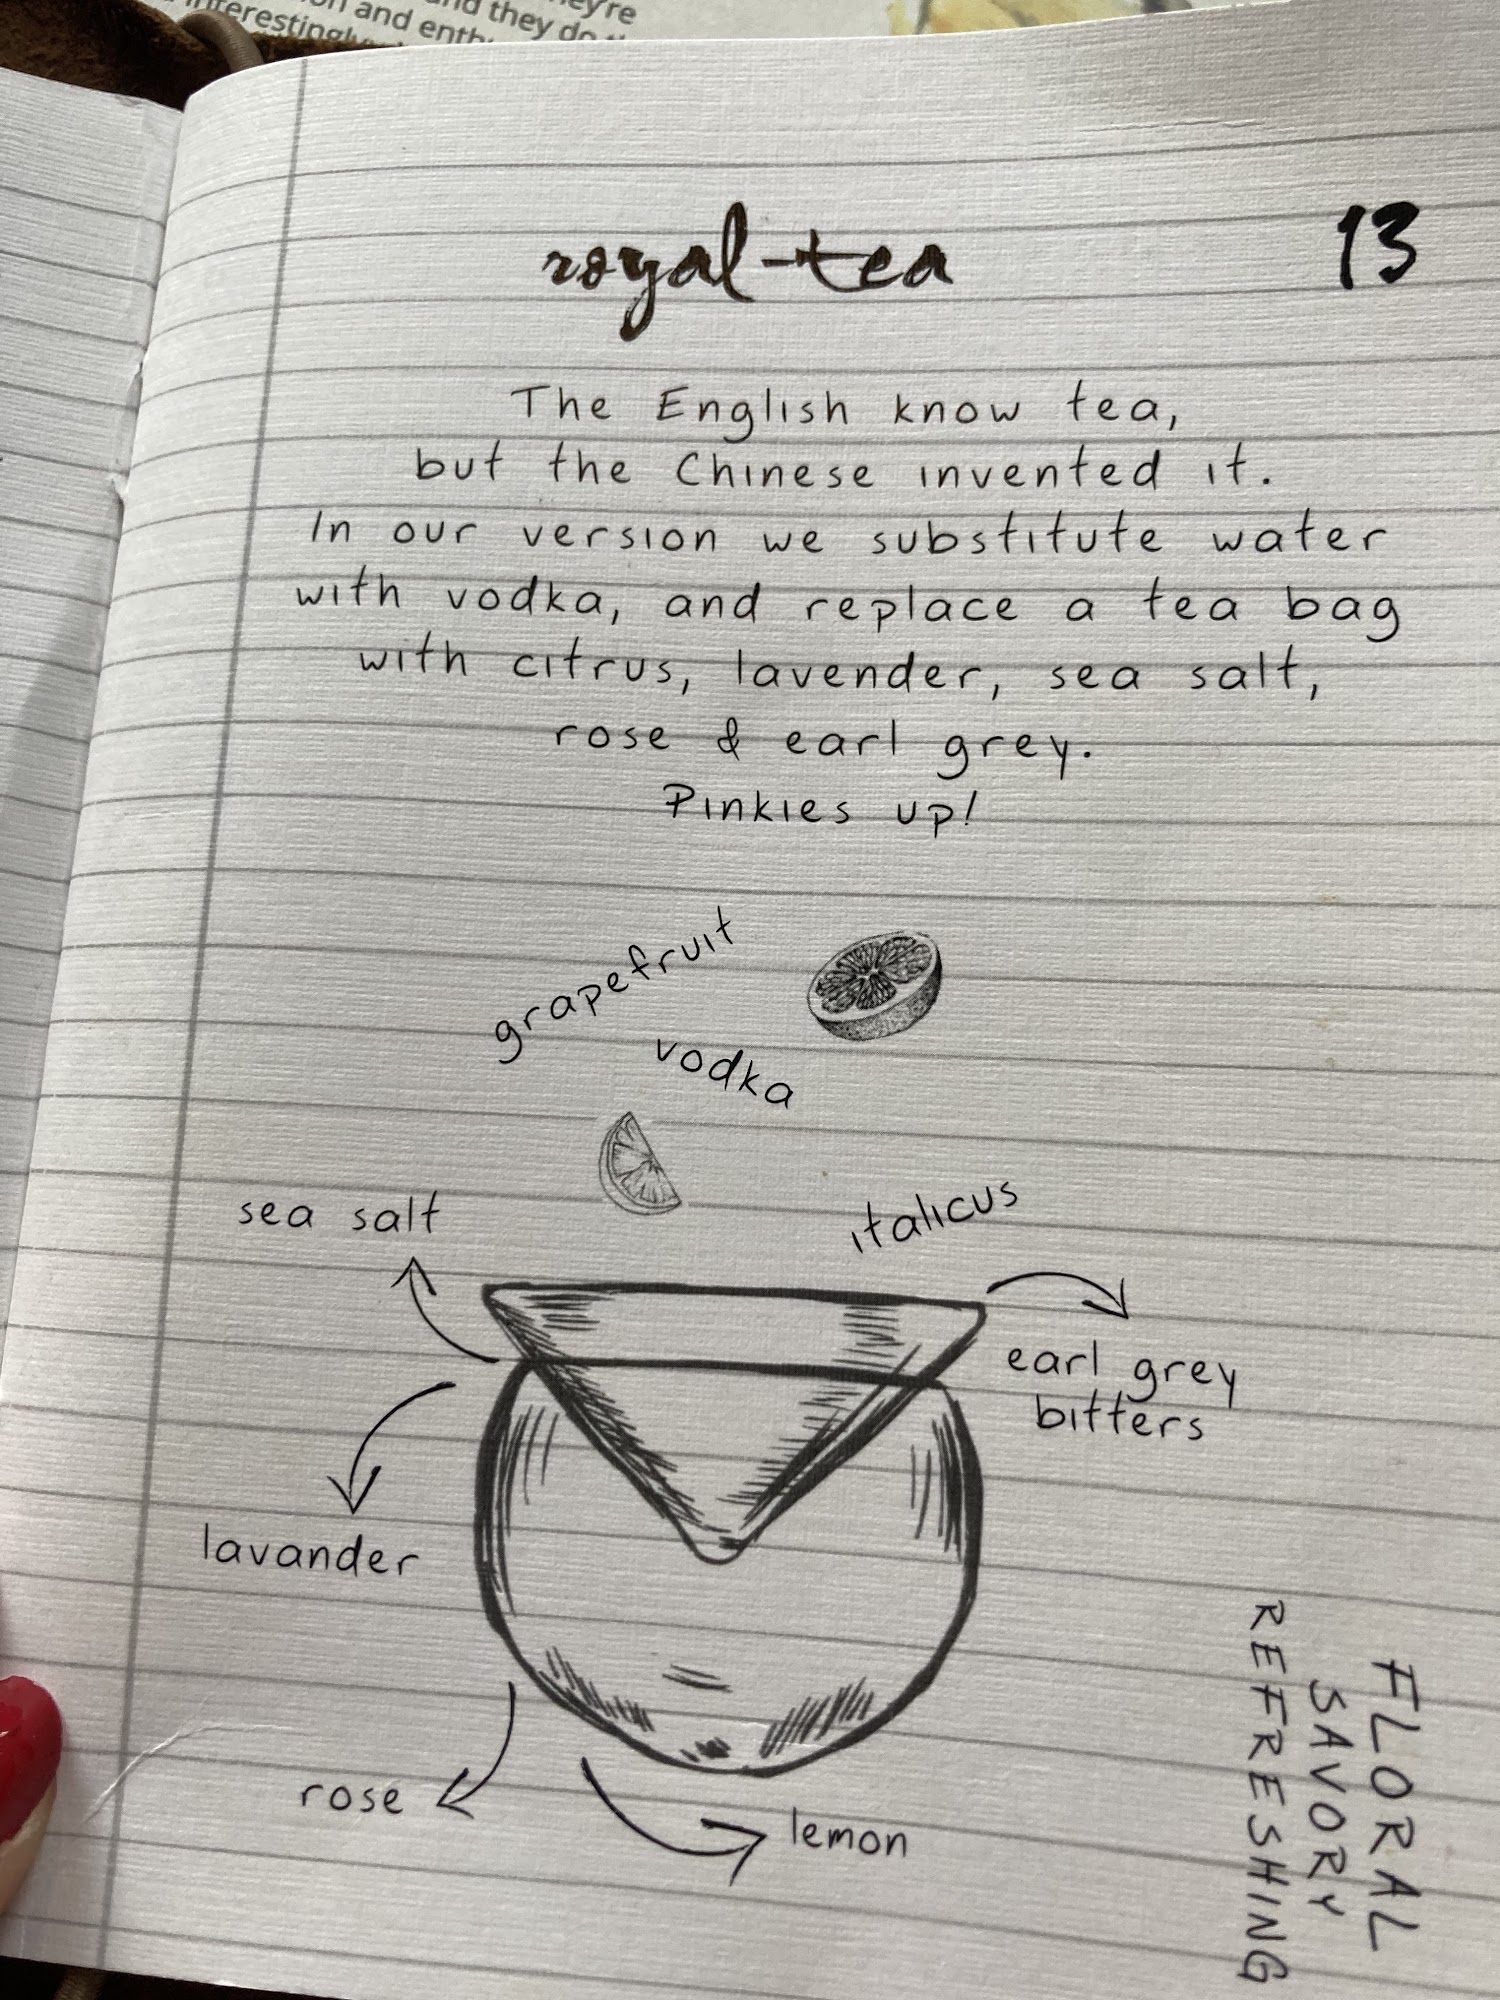 they're
and they do
on and enth
interestingly
royal-tea
13
The English know tea,
but the Chinese invented it.
In our version we substitute water
with vodka, and replace a tea bag
with citrus, lavender, sea salt,
rose & earl grey.
Pinkies up!
grapefruit
vodka
sea salt
italicus
earl grey
bitters
lavander
rose
lemon
FLORAL
SAVORY
REFRESHING